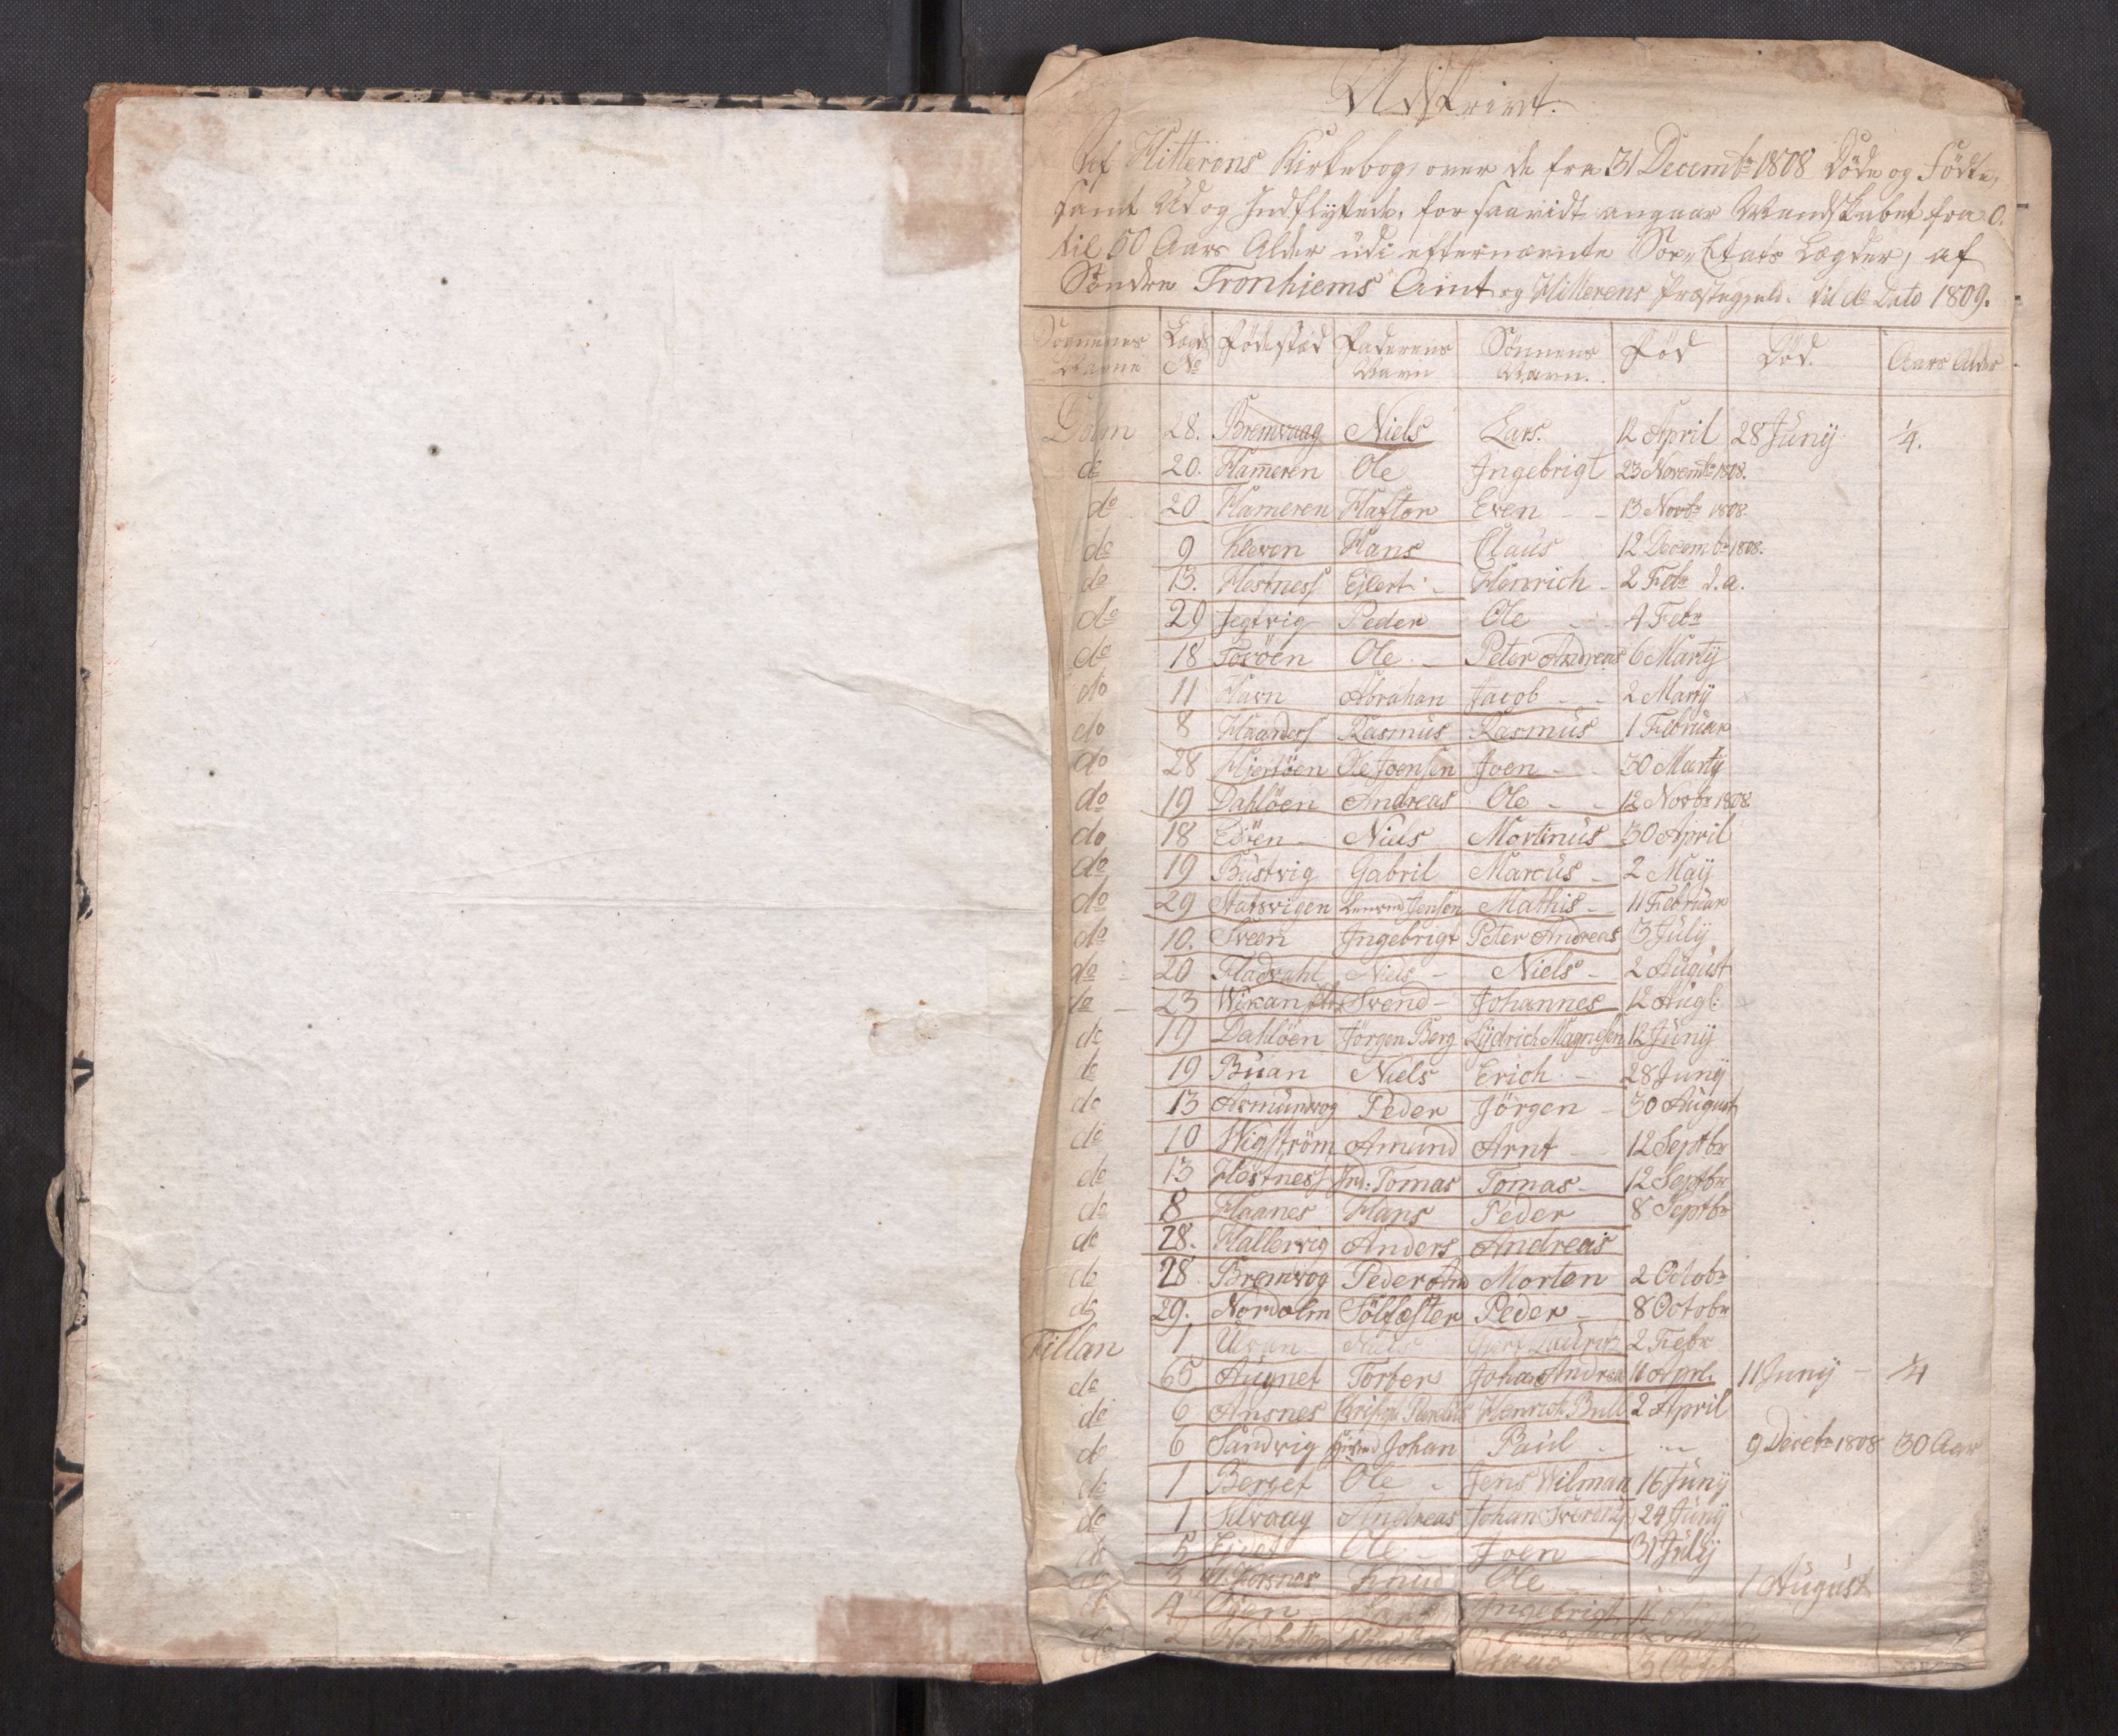 Udskrivt.
Af Hitterens Kirkebog, over de fra 31 Decembr 1808 Døde og Fødte,
samt Ud og Indflyttede, for saavidt angaar Mandskabet fra 0.
til 50 Aars Alder udi efternævnte Søe Etats Lægder, af
Søndre Tronhiems Amt og Hitterens Præstegjeld. til do Dato 1809.
Sognenes Navne Lægds No Fødested Faderens Navn Sønnens Navn. Fød Død. Aars Alder
Dolm 28. Bremvaag Niels Lars. 12 April 28 Junij 1/4.
do 20. Hameren Ole Ingebrigt 23 Novembr 1808.
do 20 Hameren Haftor Even 13 Novbr 1808.
do 9 Kleven Hans Claus 12 Decembr 1808.
do 13. Hestness Ejlert Henrich 2 Febr d.a.
do 29 Jegtvig Peder Ole 4 Febr
do 18 Fosöen Ole Peter Andreas 6 Martij
do 11 Havn Abrahan Jacob 2 Martij
do 8 Rasmus Rasmus 1 Februar
do 28 Hjertöen Ole Joensen Joen 30 Martij
do 19 Dahlöen Andreas Ole 12 Novbr 1808.
do 18 Edöen Niels Mortinus 30 April
do 19 Bustvig Gabril Marcus 2 Maij
do 29 Jensen Mathis 11 Februar
do 10. Sveen Ingebrigt Peter Andreas 3 Julij
do 20 Fladvahl Niels Niels 2 August
do 23 Wikan Svend Johannes 12 Augt:
do 19 Dahlöen Jörgen Berg Lydrich Magnesen 12 Junij
do 19 Buan Niels Erich 28 Junij
do 13 Asmundvog Peder Jörgen 30 August
do 10 Wigström Amund Arnt 12 Septbr
do 13 Hestness Tomas Tomas 12 Septbr
do 8 Haanes Hans Peder 8 Septbr
do 28. Hallervig Anders Andreas
do 28 Bremvog Peder And Morten 2 Octobr
do 29. Nordolm Sölfæster Peder 8 Octobr
Fillan 1 Ulvan Niels Lauritz 2 Febr
do 65 Augnet Torber Johan Andrea 11 Aprl. 11 Junij 1/4
do 6 Ansnes Henrich Bull 2 April
do 6 Sandvig Johan Paul 9 Decebr 1808 30 Aar
do 1 Berget Ole Jens Wilman 16 Junij
do 1 Selvaag Andreas Johan 24 Junij
do 5 Ole Joen 31 Julij
do 3 Knud Ole 1 August
do 4 Ingebrigt
do 2
do 3 Octbr